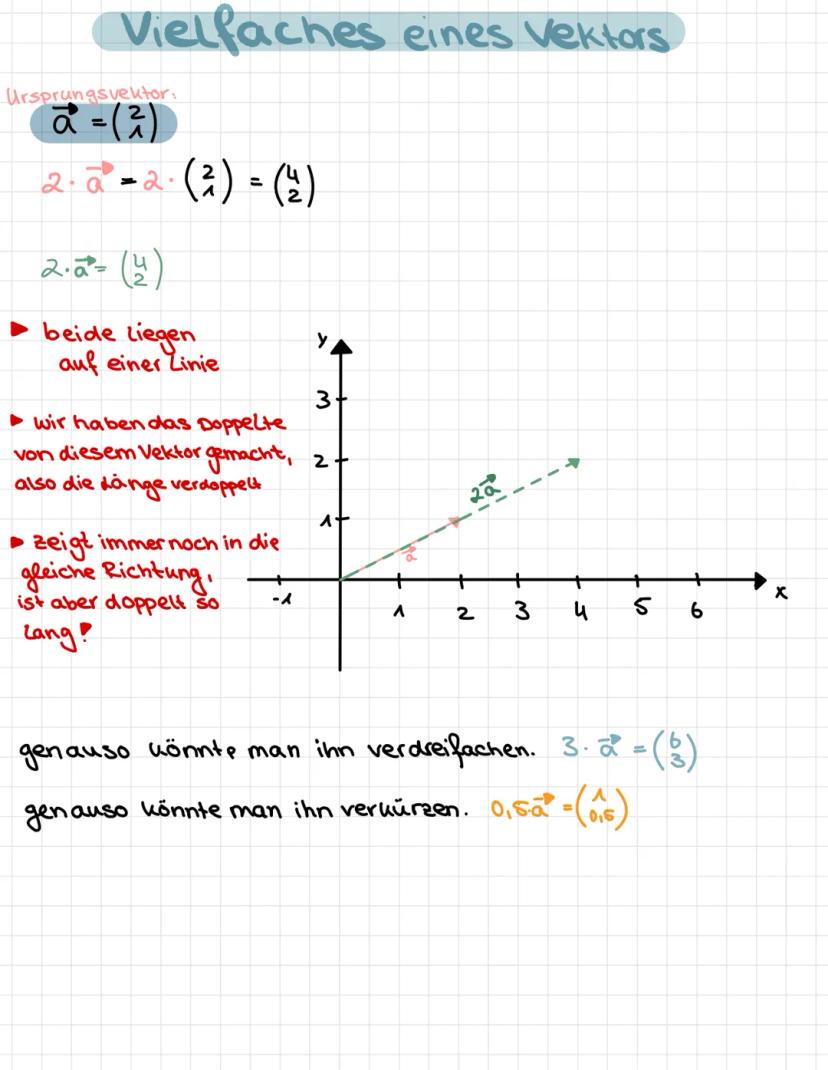 Vielfaches eines Vektors
Ursprungsvektor:
a⃗ = (2 1)
2 · a⃗ = 2 · (2 1) = (4 2)
2 · a⃗ = (4 2)
▶ beide liegen
auf einer Linie
▶ wir haben das Doppelte
von diesem Vektor gemacht,
also die Länge verdoppelt
▶ zeigt immer noch in die
gleiche Richtung,
ist aber doppelt so
lang!
y
3
2
1
2a⃗
a⃗
-1 1 2 3 4 5 6 x
genauso könnte man ihn verdreifachen. 3 · a⃗ = (6 3)
genauso könnte man ihn verkürzen. 0,5·a⃗ = (1 0,5)